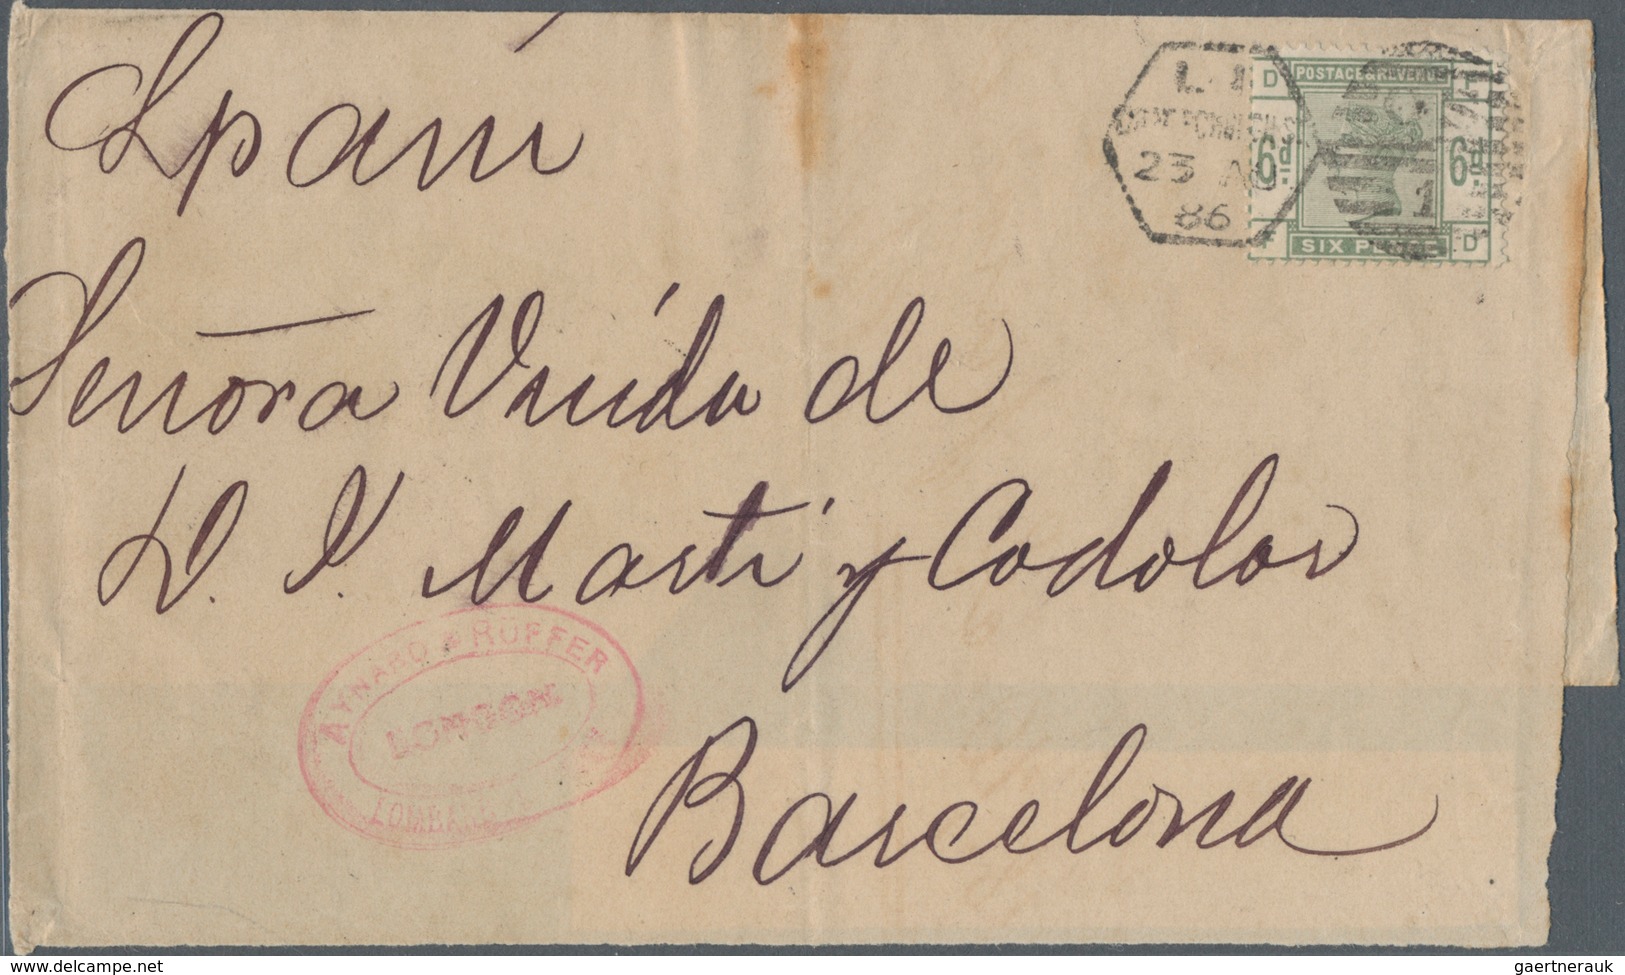 Spain
Señora Viuda de
D. J. Marti y Codolar
Barcelona
L
23 AU
86
D
POSTAGE & REVENUE
6d. 6d.
1
SIX PENCE
F D
AYNARD & RÜFFER
LONDON
LOMBARD
www.delcampe.net
gaertnerauk